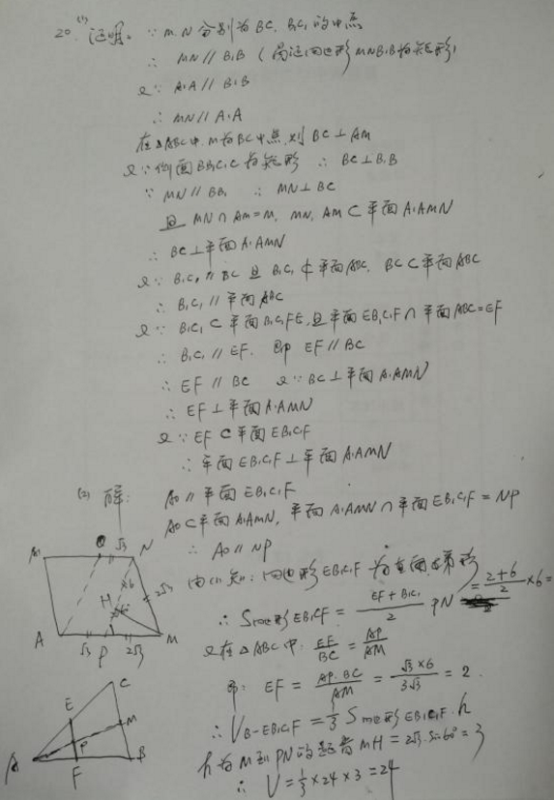 20. (1) 证明: ∵ M.N 分别为 BC, B₁C₁ 的中点
∴ MN // B₁B
又∵ A₁A // B₁B
∴ MN // A₁A
在△ABC中. M为BC中点, 则 BC⊥AM
又∵侧面BB₁C₁C为矩形 ∴ BC⊥B₁B
∵ MN // BB₁ ∴ MN⊥BC
且 MN∩AM=M, MN, AM⊂平面A₁AMN
∴ BC⊥平面A₁AMN
又∵ B₁C₁ // BC 且 B₁C₁⊄平面ABC, BC⊂平面ABC
∴ B₁C₁ // 平面ABC
又∵ B₁C₁⊂平面B₁C₁FE, 且平面EB₁C₁F∩平面ABC=EF
∴ B₁C₁ // EF. 即 EF // BC
∴ EF // BC 又∵ BC⊥平面A₁AMN
∴ EF⊥平面A₁AMN
又∵ EF⊂平面EB₁C₁F
∴ 平面EB₁C₁F⊥平面A₁AMN
(2) 解: AO // 平面EB₁C₁F
AO⊂平面A₁AMN, 平面A₁AMN∩平面EB₁C₁F = NP
∴ AO // NP
由(1)知: 四边形EB₁C₁F为 梯形
∴ S四边形EB₁C₁F = (EF+B₁C₁)/2 PN = (2+6)/2 ×6 =
又在△ABC中. EF/BC = AP/AM
即: EF = AP·BC/AM = √3×6/3√3 = 2
∴ V B-EB₁C₁F = 1/3 S四边形EB₁C₁F·h
h为M到PN的距离 MH = 2√3·sin60°=3
∴ V = 1/3 ×24×3 = 24
A₁ O √3 N
H 6 2√3
60°
A √3 P 2√3 M
C
E
M
P
A F B